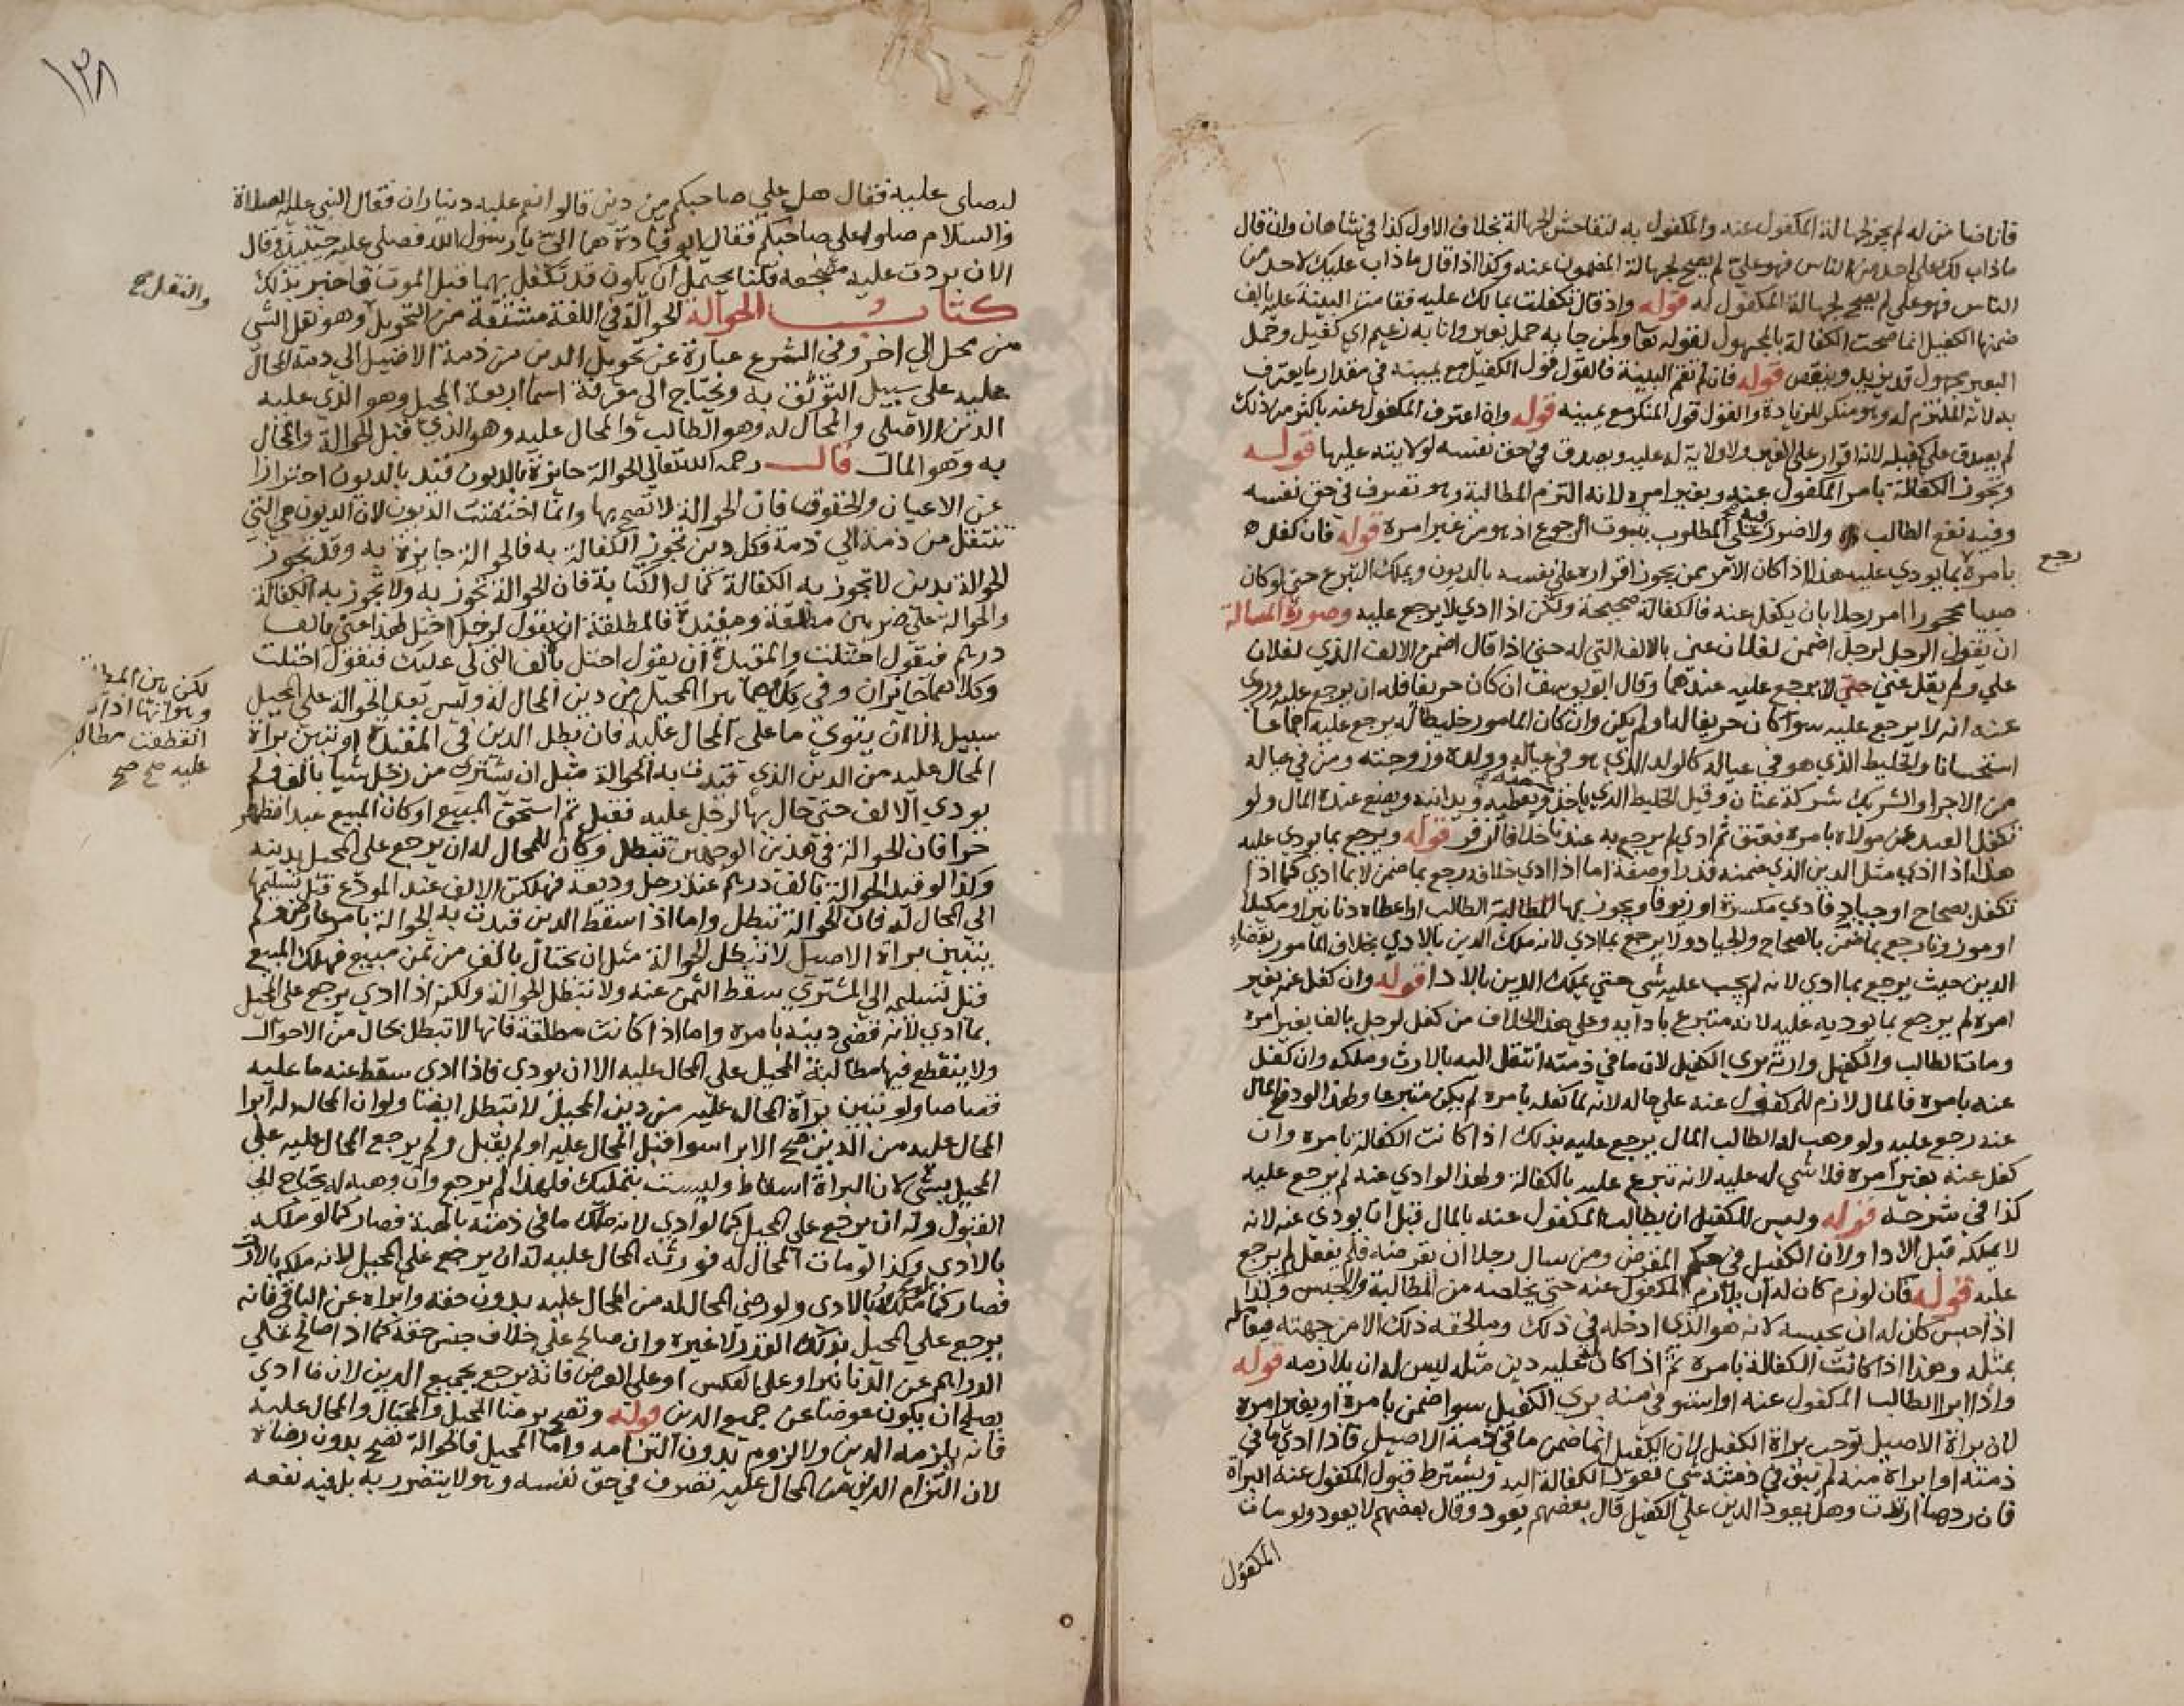 فانا ضامن له لم يجز لجهالة المكفول عنه والمكفول به لتفاحش الجهالة بخلاف الاول كذا في شاهان وان قال
ماذاب لك على احد من الناس فهو علي لم يصح لجهالة المضمون عنه وكذا اذا قال ماذاب عليك لاحد من
الناس فهو علي لم يصح لجهالة المكفول له قوله واذ قال تكفلت بما لك عليه فقامت البينة عليه بالف
ضمنها الكفيل انما صحت الكفالة بالمجهول لقوله تعا ولمن جا به حمل بعير وانا به زعيم اي كفيل وحمل
البعير مجهول قد يزيد وينقص قوله فان لم تقم البينة فالقول قول الكفيل مع يمينه في مقدار ما يعترف
به لانه الملتزم له وهو منكر للزيادة والقول قول المنكر مع يمينه قوله وان اعترف المكفول عنه باكثر من ذلك
لم يصدق على كفيله لانه اقرار على الغير ولا ولاية له عليه ويصدق في حق نفسه لولايته عليها قوله
وتجوز الكفالة بامر المكفول عنه وبغير امره لانه التزم المطالبة وهو تصرف في حق نفسه
وفيه نفع الطالب ولا ضرر فيه على المطلوب بثبوت الرجوع اذ هو من غير امره قوله فان كفل
بامره بما يودي عليه هذا اذا كان الآمر ممن يجوز اقراره على نفسه بالديون ويملك التبرع حتى لو كان
رجع
صبيا محجورا امر رجلا بان يكفل عنه فالكفالة صحيحة ولكن اذا ادي لا يرجع عليه وصورة المسالة
ان يقول الرجل لرجل اضمن لفلان عني بالالف التي له حتى اذا قال اضمن الالف الذي لفلان
علي ولم يقل عني حتي لا يرجع عليه عندهما وقال ابو يوسف ان كان حريفا فله ان يرجع عليه وروي
عنه انه لا يرجع عليه سوا كان حريفا له او لم يكن وان كان المامور خليطا له يرجع عليه اجماعا
استحسانا والخليط الذي هو في عياله كالولد الذي هو في عياله وولده وزوجته ومن في عياله
من الاجرا والشريك شركة عنان وقيل الخليط الذي ياخذ منه ويعطيه ويداينه ويضع عنده المال ولو
تكفل العبد عن مولاه بامره فعتق ثم ادي لم يرجع به عندنا خلافا لزفر قوله ويرجع بما يودي عليه
هذا اذا ادي مثل الدين الذي ضمنه قدرا وصفة اما اذا ادي خلافه رجع بما ضمن لا بما ادي كما اذا
تكفل بصحاح او جياد فادي مكسرة او زيوفا وتجوز بها الطالب او اعطاه دنانير او مكيلا
او موزونا رجع بما ضمن بالصحاح والجياد ولا يرجع بما ادي لانه ملك الدين بالادي بخلاف المامور بقضاء
الدين حيث يرجع بما ادي لانه لم يجب عليه شي حتي يملك الدين بالادا قوله وان كفل عنه بغير
امره لم يرجع بما يوديه عليه لانه متبرع بادايه وعلى هذا الخلاف من كفل لرجل بالف بغير امره
ومات الطالب والكفيل وارثه بري الكفيل لان ما في ذمته انتقل اليه بالارث وملكه وان كفل
عنه بامره فالمال لازم للمكفول عنه علي حاله لانه لما كفله بامره لم يكن متبرعا ولهذا لو دفع المال
عنه رجع عليه ولو وهب له الطالب المال يرجع عليه بذلك اذا كانت الكفالة بامره وان
كفل عنه بغير امره فلا شي له عليه لانه تبرع عليه بالكفالة ولهذا لو ادي عنه لم يرجع عليه
كذا في شرحه قوله وليس للكفيل ان يطالب المكفول عنه بالمال قبل ان يودي عنه لانه
لا يملكه قبل الادا ولان الكفيل في حكم المقرض ومن سال رجلا ان يقرضه فلم يفعل لم يرجع
عليه قوله فان لوزم كان له ان يلازم المكفول عنه حتي يخلصه من المطالبة والحبس وكذا
اذا حبس كان له ان يحبسه لانه هو الذي ادخله في ذلك وما لحقه ذلك الا من جهته فيعامله
بمثله وهذا اذا كانت الكفالة بامره ثم اذا كان عليه دين مثله ليس له ان يلازمه قوله
واذا ابرا الطالب المكفول عنه او استوفي منه بري الكفيل سوا ضمن بامره او بغير امره
لان براة الاصيل توجب براة الكفيل لان الكفيل انما ضمن ما في ذمة الاصيل فاذا ادي ما في
ذمته او ابراه منه لم يبق في ذمته شي تعود الكفالة اليه ويشترط قبول المكفول عنه البراة
فان ردها ارتدت وهل يعود الدين علي الكفيل قال بعضهم يعود وقال بعضهم لا يعود ولو مات
المكفول
١٣٨
ليصلي عليه فقال هل علي صاحبكم من دين قالوا نعم عليه ديناران فقال النبي عليه الصلاة
والسلام صلوا علي صاحبكم فقال ابو قتادة هما اليّ يا رسول الله فصلى عليه حينئذ وقال
الان بردت عليه مضجعه قلنا يحتمل ان يكون قد تكفل بهما قبل الموت فاخبر بذلك
كتاب الحوالة الحوالة في اللغة مشتقة من التحويل وهو نقل الشي
والنقل صح
من محل الي اخر وفي الشرع عبارة عن تحويل الدين من ذمة الاصيل الي ذمة المحال
عليه علي سبيل التوثق به وتحتاج الى معرفة اسما اربعة المحيل وهو الذي عليه
الدين الاصلي والمحال له وهو الطالب والمحال عليه وهو الذي قبل الحوالة والمحال
به وهو المال قال رحمه الله تعالي الحوالة جايزة بالديون قيد بالديون احترازا
عن الاعيان والحقوق فان الحوالة لا تصح بها وانما اختصت الديون لان الديون هي التي
تنتقل من ذمة الي ذمة وكل دين تجوز الكفالة به فالحوالة جايزة به وقد تجوز
الحوالة بدين لا تجوز به الكفالة كمال الكتابة فان الحوالة تجوز به ولا تجوز به الكفالة
والحوالة علي ضربين مطلقة ومقيدة فالمطلقة ان يقول لرجل احتل لهذا عني بالف
درهم فيقول احتلت والمقيدة ان يقول احتل بالف التي لي عليك فيقول احتلت
وكلاهما جايزان وفي كلاهما يبرا المحيل من دين المحال له وليس بعد الحوالة علي المحيل
لكن بين
وهو انها اذا
انقطعت
عليه صح صح
سبيل الا ان يتوي ما علي المحال عليه فان بطل الدين في المقيدة او تبين براة
المحال عليه من الدين الذي قيدت به الحوالة مثل ان يشتري من رجل شيا بالف ولم
يودي الالف حتى حال بها لرجل عليه فقبل ثم استحق المبيع او كان المبيع عبدا فظهر
حرا فان الحوالة في هذين الوجهين تبطل وكان للمحال له ان يرجع علي المحيل بدينه
وكذا لو قيد الحوالة بالف درهم عند رجل وديعة فهلكت الالف عند المودع قبل تسليمها
الى المحال له فان الحوالة تبطل واما اذا سقط الدين قيدت به الحوالة بامر عارض ولم
يتبين براة الاصيل لا تبطل الحوالة مثل ان يحتال بالف من ثمن مبيع فهلك المبيع
قبل تسليمه الي المشتري سقط الثمن عنه ولا تبطل الحوالة ولكن اذا ادي يرجع علي المحيل
بما ادي لانه قضي دينه بامره واما اذا كانت مطلقة فانها لا تبطل بحال من الاحوال
ولا ينقطع فيها مطالبة المحيل علي المحال عليه الا ان يودي فاذا ادى سقط عنه ما عليه
قصاصا ولو تبين براة المحال عليه من دين المحيل لا تبطل ايضا ولو ان المحال له ابرا
المحال عليه من الدين صح الابرا سوا قبل المحال عليه او لم يقبل ولم يرجع المحال عليه علي
المحيل بشي لان البراة اسقاط وليست بتمليك فلهذا لم يرجع وان وهبه له يحتاج الى
القبول وله ان يرجع علي المحيل كما لو ادي لانه ملك ما في ذمته بالهبة فصار كما لو ملكه
بالادي وكذا لو مات المحال له فورثه المحال عليه له ان يرجع علي المحيل لانه ملكه بالارث
فصار كما لو ملكه بالادى ولو رضي المحال له من المحال عليه بدون حقه وابراه عن الباقي فانه
يرجع علي المحيل بذلك القدر لا غيره وان صالح علي خلاف جنس حقه كما اذا صالح علي
الدراهم عن الدنانير او علي العكس او علي العرض فانه يرجع بجميع الدين لان ما ادي
يصلح ان يكون عوضا عن جميع الدين قوله وتصح برضا المحيل والمحتال والمحال عليه
فانه يلزمه الدين ولا لزوم بدون التزامه واما المحيل فالحوالة تصح بدون رضاه
لان التزام الدين من المحال عليه تصرف في حق نفسه وهو لا يتضرر به بل فيه نفعه